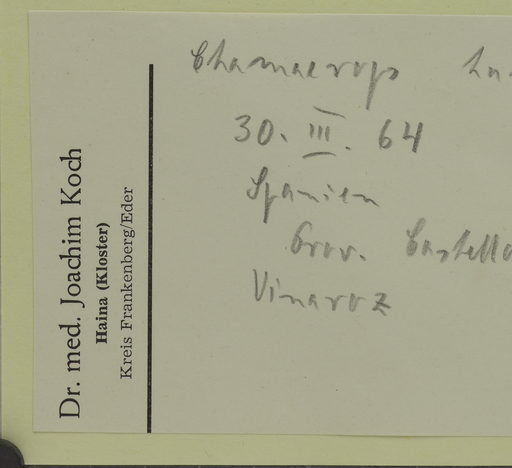 Dr. med. Joachim Koch
Haina (Kloster)
Kreis Frankenberg/Eder
Chamaerops hu
30. III. 64
Spanien
Prov. Castello
Vinaroz